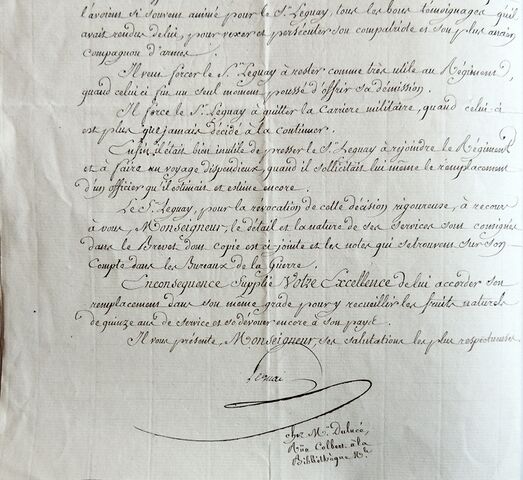 l'avoient si souvent animé pour le Sr. Leguay, tous les bons témoignages qu'il
avait rendus de lui, pour vexer et persécuter son compatriote et son plus ancien
compagnon d'armes.
Il veut forcer le Sr. Leguay à rester comme très utile au Régiment,
quand celui ci fut un seul moment poussé d'offrir sa démission.
Il force le Sr. Leguay à quitter la Carrière militaire, quand celui-ci
est plus que jamais décidé à la continuer.
Enfin il était bien inutile de presser le Sr. Leguay à rejoindre le Régiment
et à faire un voyage dispendieux, quand il sollicitait lui même le remplacement
d'un officier qu'il estimait et estime encore.
Le Sr. Leguay, pour la révocation de cette décision rigoureuse, a recours
à vous, Monseigneur, le détail et la nature de ses services sont consignés
dans le Brevet dont copie est ci jointe et les notes qui se trouvent sur son
Compte dans les Bureaux de la Guerre.
En conséquence Supplie Votre Excellence de lui accorder son
remplacement dans son même grade pour y recueillir les fruits naturels
de quinze ans de service et se dévouer encore à son pays.
Il vous présente, Monseigneur, ses salutations les plus respectueuses.
chez Mr.
Rüe Colbert à la
Bibliothèque Rle